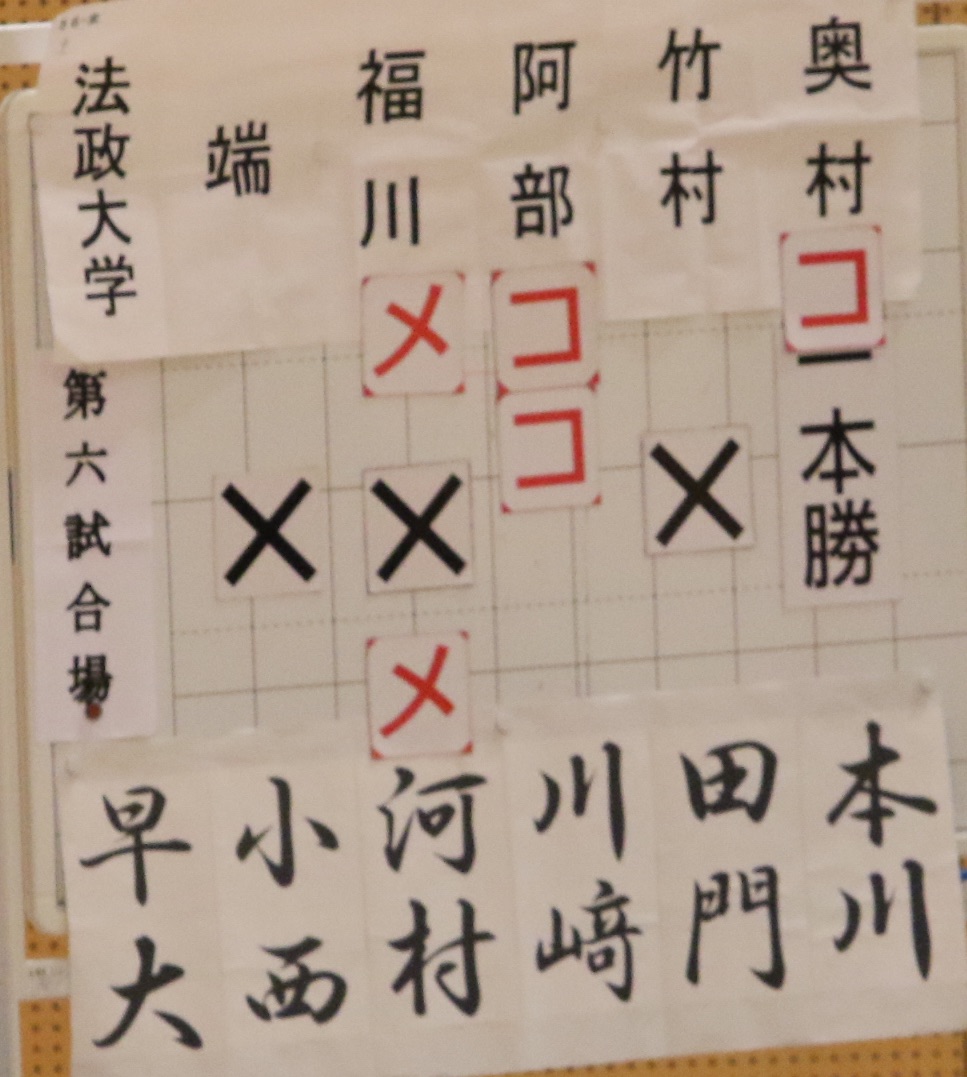 奥村
コ
一本勝
本川
竹村
×
田門
阿部
コ
コ
川﨑
福川
メ
×
メ
河村
端
×
小西
法政大学
第六試合場
早大